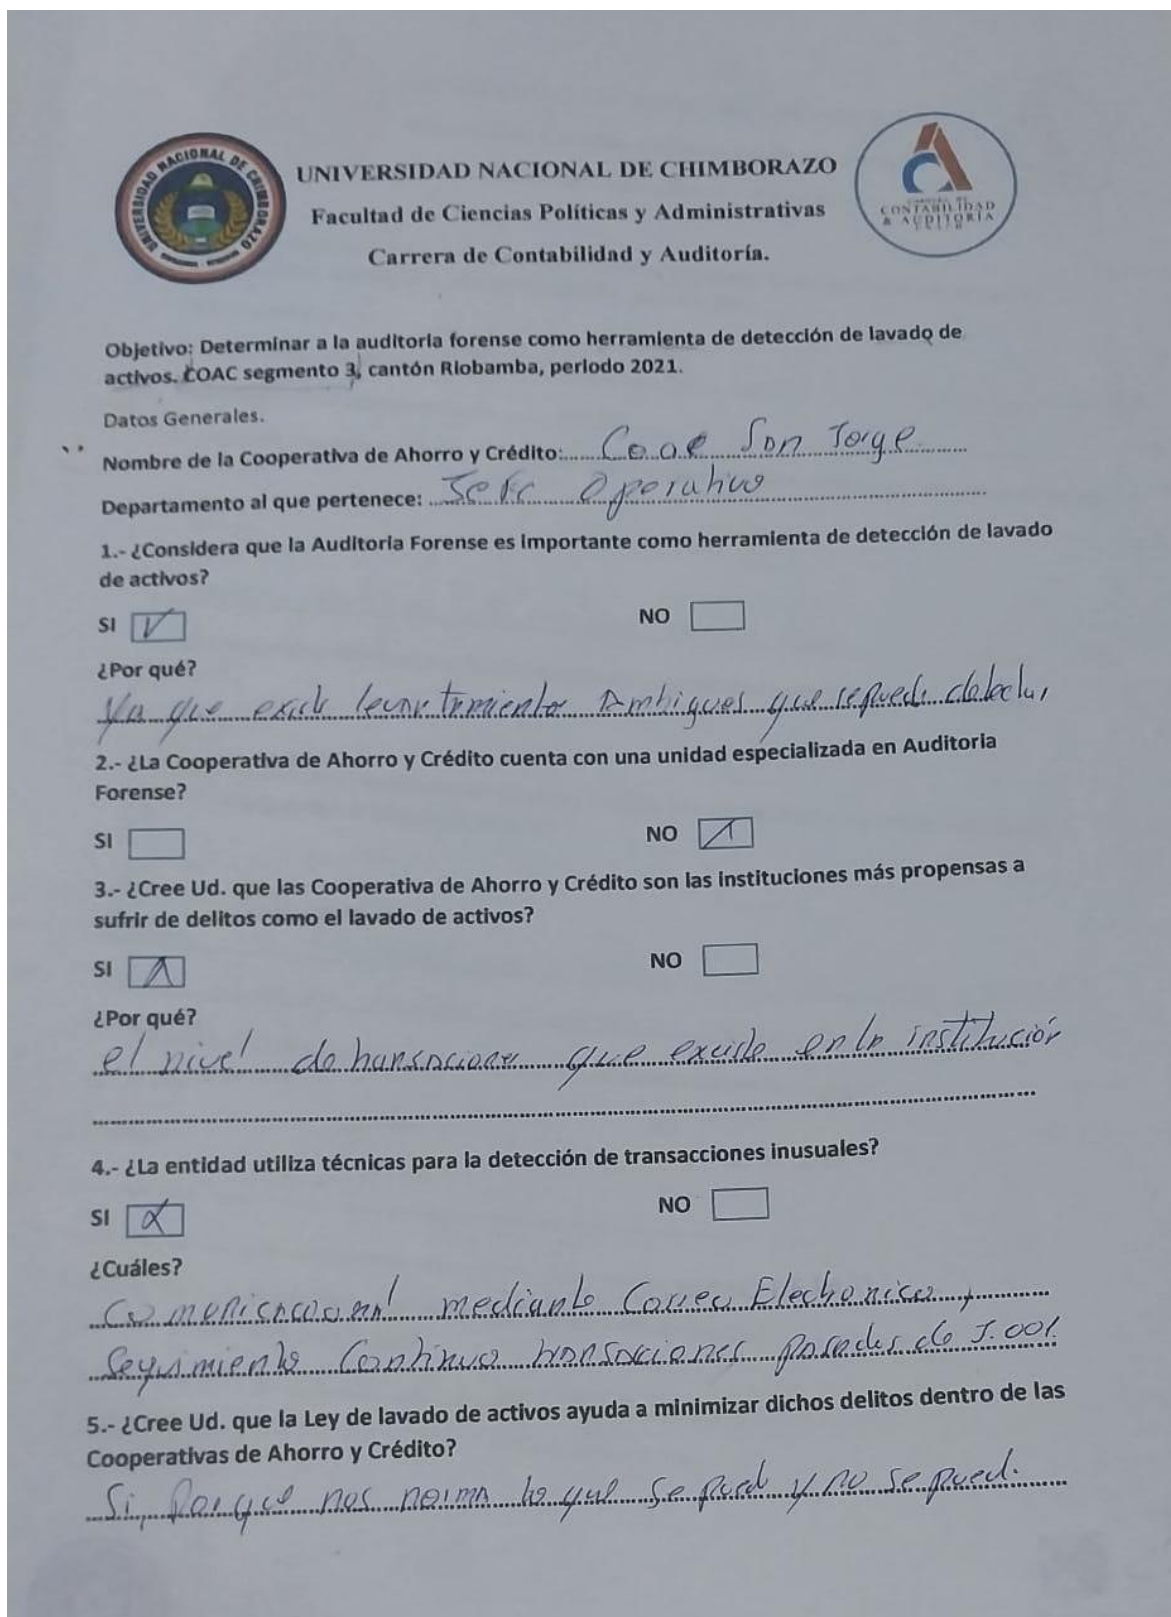 UNIVERSIDAD NACIONAL DE CHIMBORAZO
UNIVERSIDAD NACIONAL DE CHIMBORAZO
Facultad de Ciencias Políticas y Administrativas
Carrera de Contabilidad y Auditoría.
CONTABILIDAD
& AUDITORÍA
Objetivo: Determinar a la auditoria forense como herramienta de detección de lavado de
activos. COAC segmento 3, cantón Riobamba, periodo 2021.
Datos Generales.
Nombre de la Cooperativa de Ahorro y Crédito: Coac San Jorge
Departamento al que pertenece: Jefe Operativo
1.- ¿Considera que la Auditoria Forense es importante como herramienta de detección de lavado
de activos?
SI NO
¿Por qué?
Ya que existe Ambigues que se puede detectar
2.- ¿La Cooperativa de Ahorro y Crédito cuenta con una unidad especializada en Auditoria
Forense?
SI NO
3.- ¿Cree Ud. que las Cooperativa de Ahorro y Crédito son las instituciones más propensas a
sufrir de delitos como el lavado de activos?
SI NO
¿Por qué?
el nivel de transacciones que existe en la institución
4.- ¿La entidad utiliza técnicas para la detección de transacciones inusuales?
SI NO
¿Cuáles?
mediante Correo Electronico,
Seguimiento Continuo transaciones pasados de 5.001.
5.- ¿Cree Ud. que la Ley de lavado de activos ayuda a minimizar dichos delitos dentro de las
Cooperativas de Ahorro y Crédito?
Si, Porque nos norma lo que se pued y no se pued.